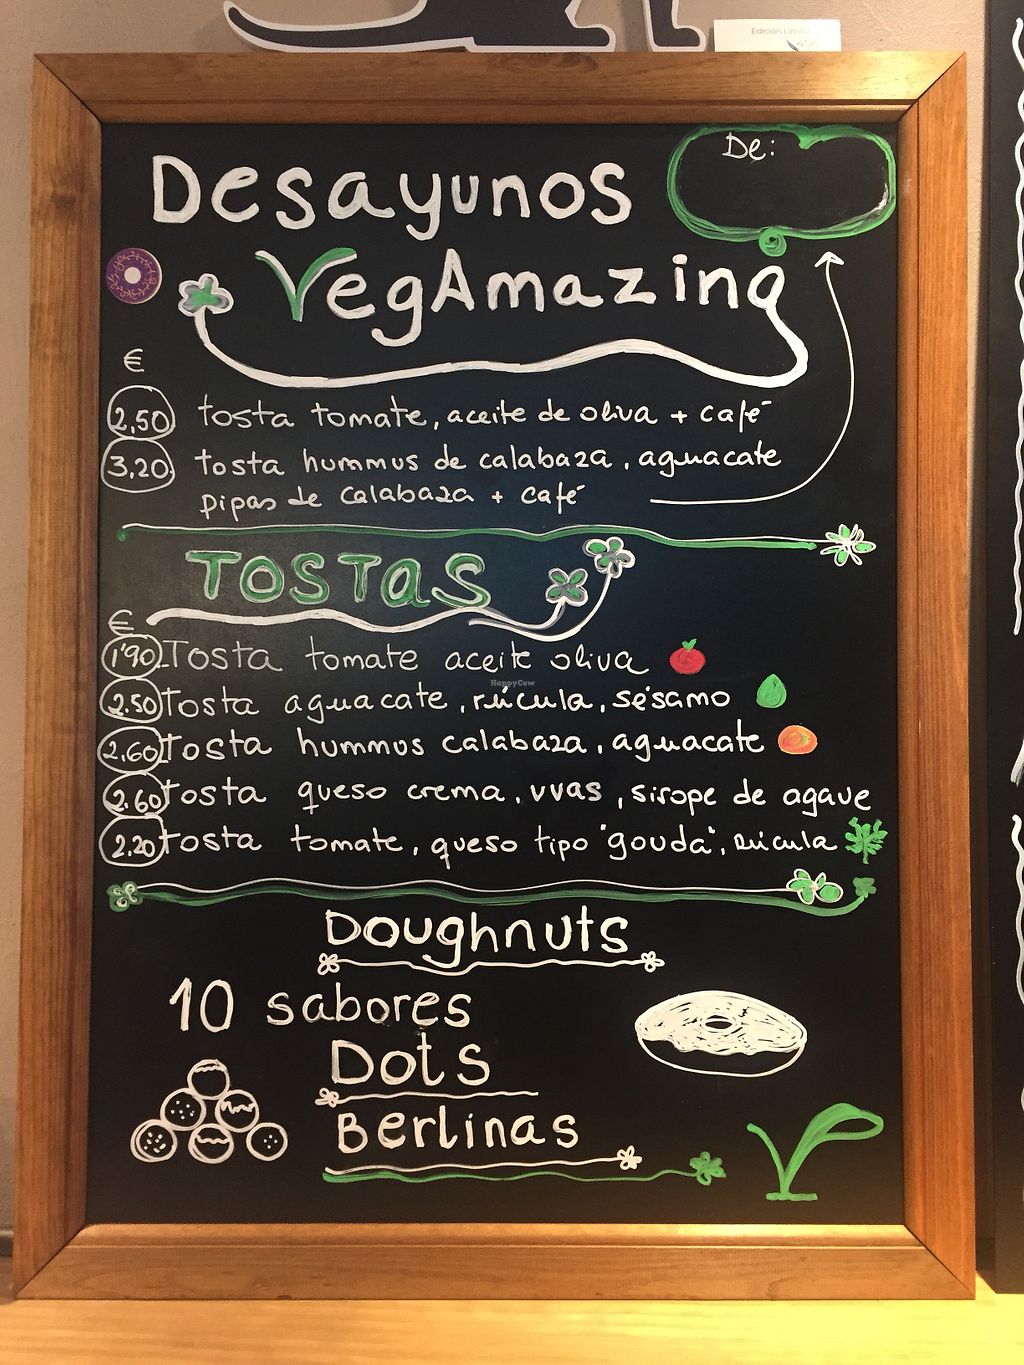 Edición Limita
De:
Desayunos
VegAmazing
€
2,50 tosta tomate, aceite de oliva + café
3,20 tosta hummus de calabaza, aguacate
pipas de calabaza + café
TOSTas
€
1'90 Tosta tomate aceite oliva
2.50 Tosta aguacate, rúcula, sésamo
2,60 Tosta hummus calabaza, aguacate
2.60 tosta queso crema, uvas, sirope de agave
2.20 tosta tomate, queso tipo "gouda", rúcula
Doughnuts
10 sabores
Dots
Berlinas
HappyCow